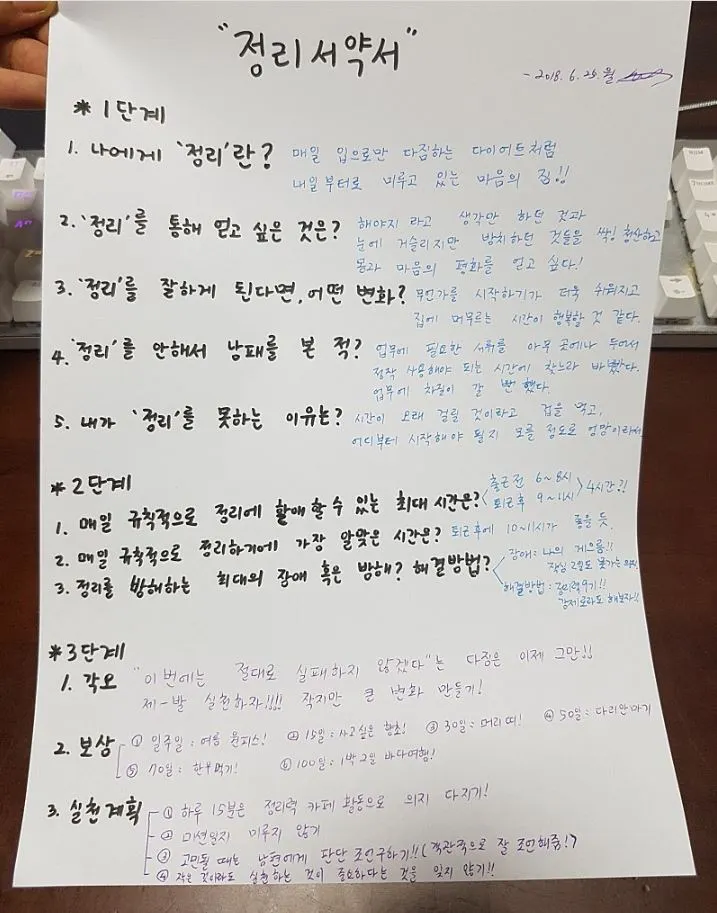 "정리서약서"
- 2018. 6. 25. 월
* 1단계
1. 나에게 '정리'란? 매일 입으로만 다짐하는 다이어트처럼
내일부터로 미루고 있는 마음의 짐!!
2. '정리'를 통해 얻고 싶은 것은? 해야지 라고 생각만 하던 것과
눈에 거슬리지만 방치하던 것들을 싹 청산하고
몸과 마음의 평화를 얻고 싶다!
3. '정리'를 잘하게 된다면, 어떤 변화? 무언가를 시작하기가 더욱 쉬워지고
집에 머무르는 시간이 행복할 것 같다.
4. '정리'를 안해서 낭패를 본 적? 업무에 필요한 서류를 아무 곳에나 두어서
정작 사용해야 되는 시간에 찾느라 바빴다.
업무에 차질이 갈 뻔 했다.
5. 내가 '정리'를 못하는 이유는? 시간이 오래 걸릴 것이라고 겁을 먹고,
어디부터 시작해야 될지 모를 정도로 엉망이라서
* 2단계
1. 매일 규칙적으로 정리에 할애할 수 있는 최대 시간은? 출근 전 6~8시
퇴근후 9~11시 4시간?!
2. 매일 규칙적으로 정리하기에 가장 알맞은 시간은? 퇴근후에 10~11시가 좋을 듯.
3. 정리를 방해하는 최대의 장애 혹은 방해? 해결방법? 장애: 나의 게으름!!
작심 2일도 못가는 의지
해결방법: 정리력 9기!!
강제로라도 해보자!!
* 3단계
1. 각오 "이번에는 절대로 실패하지 않겠다"는 다짐은 이제 그만!!
제-발 실천하자!!!! 작지만 큰 변화 만들기!
2. 보상 ① 일주일: 여름 원피스! ② 15일: 사고싶은 향초! ③ 30일: 머리띠! ④ 50일: 다리안마기
⑤ 70일: 한우먹기! ⑥ 100일: 1박 2일 바다여행!
3. 실천계획 ① 하루 15분은 정리력 카페 활동으로 의지 다지기!
② 미션일지 미루지 않기
③ 고민될 때는 남편에게 판단 조언구하기!! (객관적으로 잘 조언해줌!)
④ 작은 것이라도 실천하는 것이 중요하다는 것을 잊지 않기!!